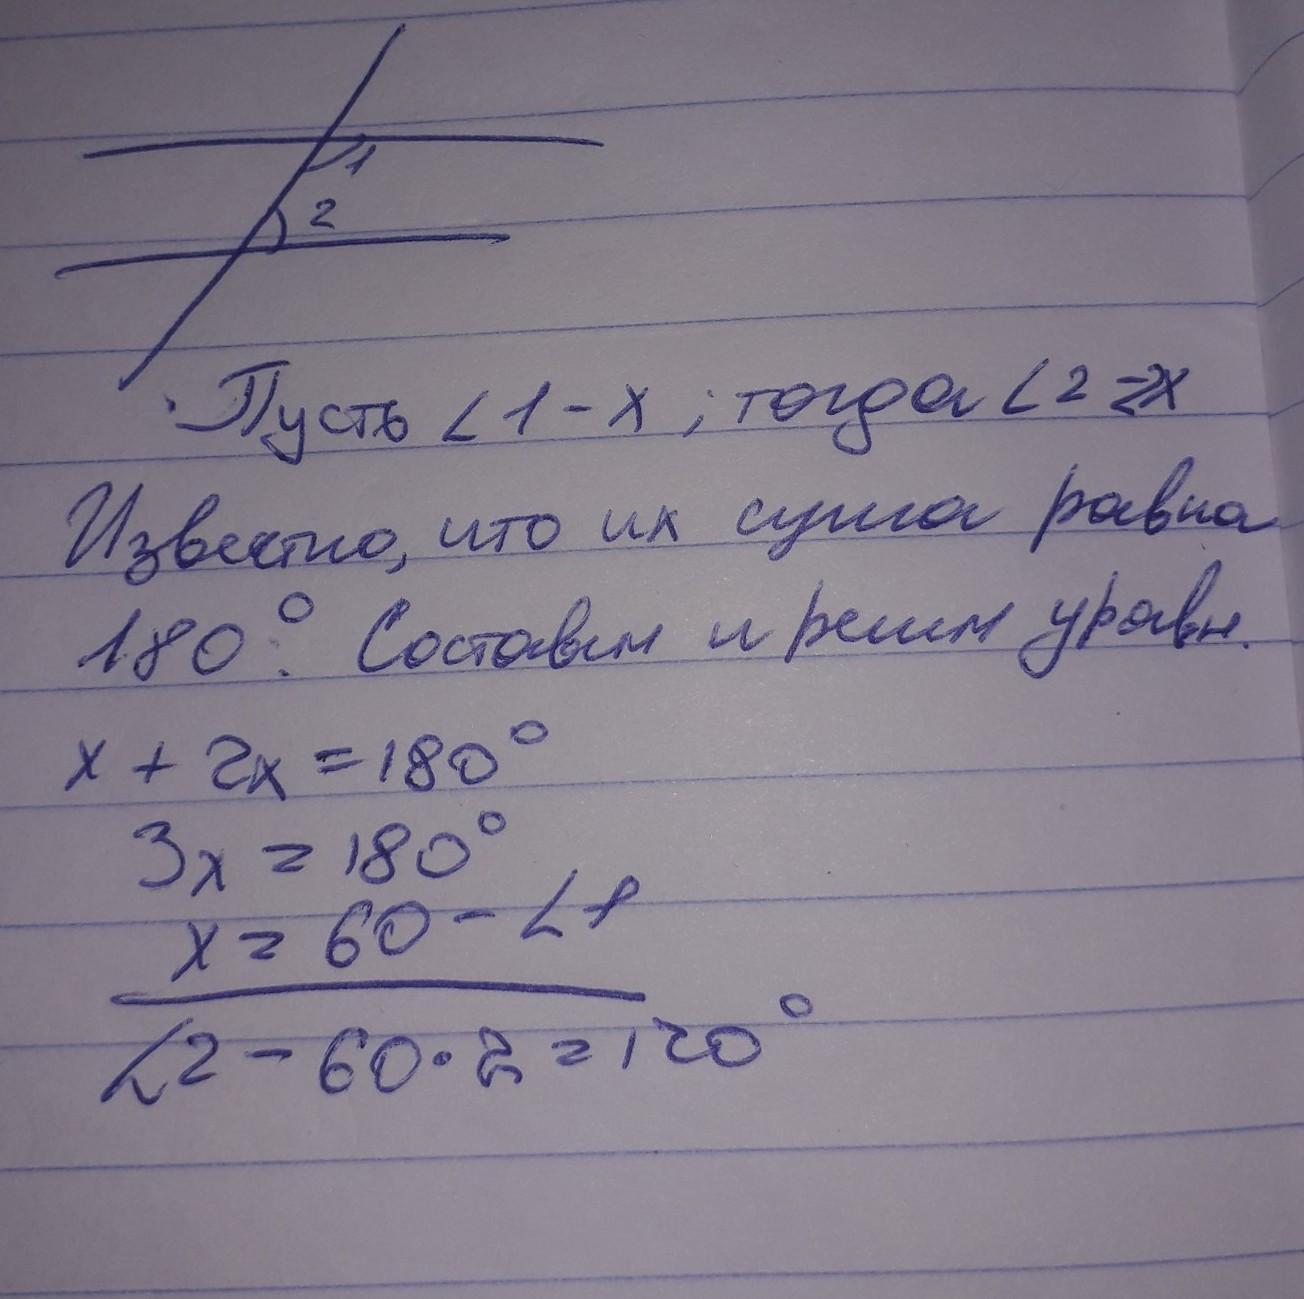 1
2
Пусть ∠1 - x ; тогда ∠2 = 2x
Известно, что их сумма равна
180°. Составим и решим уравн.
x + 2x = 180°
3x = 180°
x = 60 - ∠1
∠2 - 60 · 2 = 120°